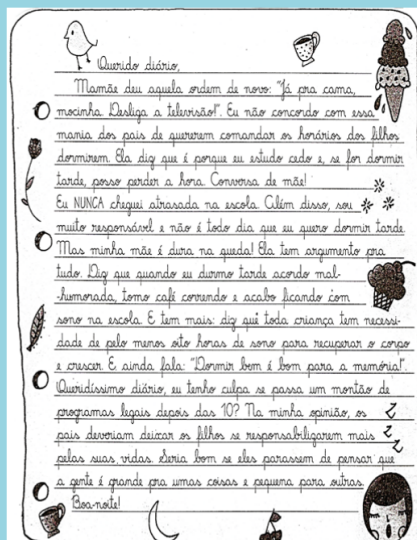 Querido diário,
Mamãe deu aquela ordem de novo: "Já pra cama,
mocinha. Desliga a televisão!". Eu não concordo com essa
mania dos pais de quererem comandar os horários dos filhos
dormirem. Ela diz que é porque eu estudo cedo e, se for dormir
tarde, posso perder a hora. Conversa de mãe!
Eu NUNCA cheguei atrasada na escola. Além disso, sou
muito responsável e não é todo dia que eu quero dormir tarde.
Mas minha mãe é dura na queda! Ela tem argumento pra
tudo. Diz que quando eu durmo tarde acordo mal-
-humorada, tomo café correndo e acabo ficando com
sono na escola. E tem mais: diz que toda criança tem necessi-
dade de pelo menos oito horas de sono para recuperar o corpo
e crescer. E ainda fala: "Dormir bem é bom para a memória!".
Queridíssimo diário, eu tenho culpa se passa um montão de
programas legais depois das 10? Na minha opinião, os
pais deveriam deixar os filhos se responsabilizarem mais
pelas suas vidas. Seria bom se eles parassem de pensar que
a gente é grande pra umas coisas e pequena para outras.
Boa-noite!